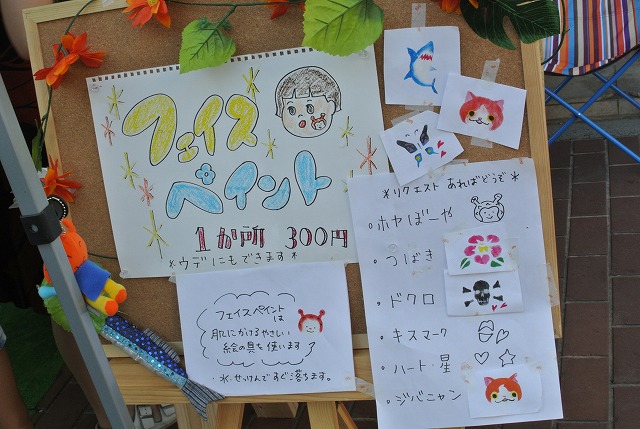 フェイス
ペイント
1か所 300円
*ウデにもできます*
フェイスペイント
は
肌にかけるやさしい
絵の具を使います
・水、せっけんですぐ落ちます。
*リクエスト あればどうぞ*
・ホヤぼーや
・つばき
・ドクロ
・キスマーク
・ハート・星
・ジバニャン